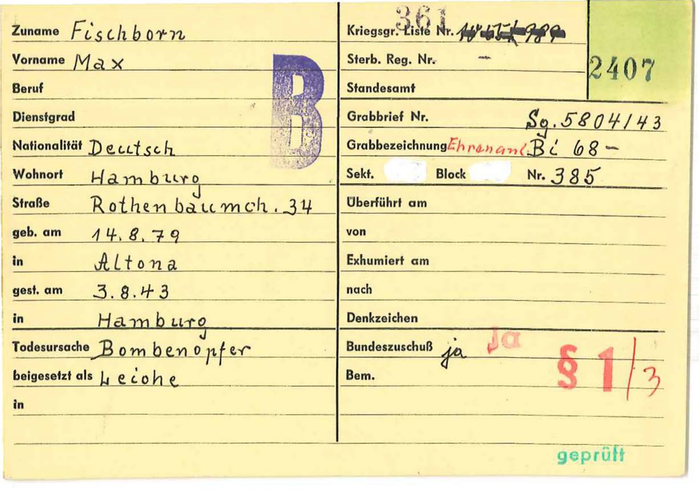 Zuname Fischborn
Vorname Max
Beruf
Dienstgrad
Nationalität Deutsch
Wohnort Hamburg
Straße Rothenbaumch. 34
geb. am 14.8.79
in Altona
gest. am 3.8.43
in Hamburg
Todesursache Bombenopfer
beigesetzt als Leiche
in
B
361
Kriegsgr. Liste Nr.
Sterb. Reg. Nr. —
2407
Standesamt
Grabbrief Nr. Sg. 5804/43
Grabbezeichnung Ehrenanl Bi 68 —
Sekt. Block Nr. 385
Überführt am
von
Exhumiert am
nach
Denkzeichen
Bundeszuschuß ja Ja
Bem. § 1/3
geprüft